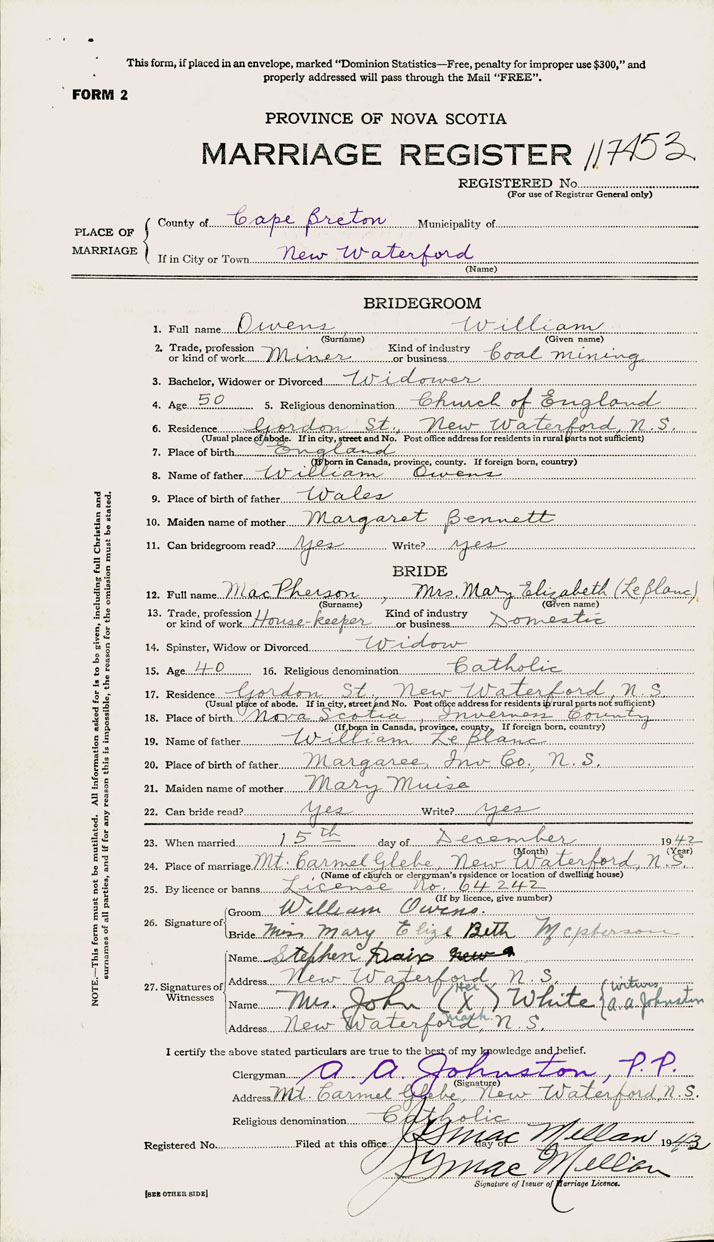 This form, if placed in an envelope, marked "Dominion Statistics—Free, penalty for improper use $300," and
properly addressed will pass through the Mail "FREE".
FORM 2
PROVINCE OF NOVA SCOTIA
MARRIAGE REGISTER 117453
REGISTERED No.
(For use of Registrar General only)
PLACE OF MARRIAGE
County of Cape Breton Municipality of
If in City or Town New Waterford
(Name)
BRIDEGROOM
1. Full name Owens, William
(Surname) (Given name)
2. Trade, profession or kind of work Miner Kind of industry or business Coal mining
3. Bachelor, Widower or Divorced Widower
4. Age 50 5. Religious denomination Church of England
6. Residence Gordon St., New Waterford, N.S.
(Usual place of abode. If in city, street and No. Post office address for residents in rural parts not sufficient)
7. Place of birth England
(If born in Canada, province, county. If foreign born, country)
8. Name of father William Owens
9. Place of birth of father Wales
10. Maiden name of mother Margaret Bennett
11. Can bridegroom read? yes Write? yes
BRIDE
12. Full name MacPherson, Mrs. Mary Elizabeth (LeBlanc)
(Surname) (Given name)
13. Trade, profession or kind of work House-keeper Kind of industry or business Domestic
14. Spinster, Widow or Divorced Widow
15. Age 40 16. Religious denomination Catholic
17. Residence Gordon St., New Waterford, N.S.
(Usual place of abode. If in city, street and No. Post office address for residents in rural parts not sufficient)
18. Place of birth Nova Scotia, Inverness County
(If born in Canada, province, county. If foreign born, country)
19. Name of father William LeBlanc
20. Place of birth of father Margaree, Inv Co., N.S.
21. Maiden name of mother Mary Muise
22. Can bride read? yes Write? yes
23. When married 15th day of December 1942
(Month) (Year)
24. Place of marriage Mt. Carmel Glebe, New Waterford, N.S.
(Name of church or clergyman's residence or location of dwelling house)
25. By licence or banns License No. 64242
(If by licence, give number)
26. Signature of
Groom William Owens.
Bride Mrs Mary Elize Beth Mcpherson
27. Signatures of Witnesses
Name Stephen
Address New Waterford N.S.
Name Mrs. John (Her X mark) White (witness A. A. Johnston
Address New Waterford, N.S.
I certify the above stated particulars are true to the best of my knowledge and belief.
Clergyman A. A. Johnston, P.P.
(Signature)
Address Mt. Carmel Glebe, New Waterford, N.S.
Religious denomination Catholic
Registered No. Filed at this office MacMillan day of 1943
MacMillan
Signature of Issuer of Marriage Licence.
[SEE OTHER SIDE]
NOTE.—This form must not be mutilated. All information asked for is to be given, including full Christian and
surnames of all parties, and if for any reason this is impossible, the reason for the omission must be stated.